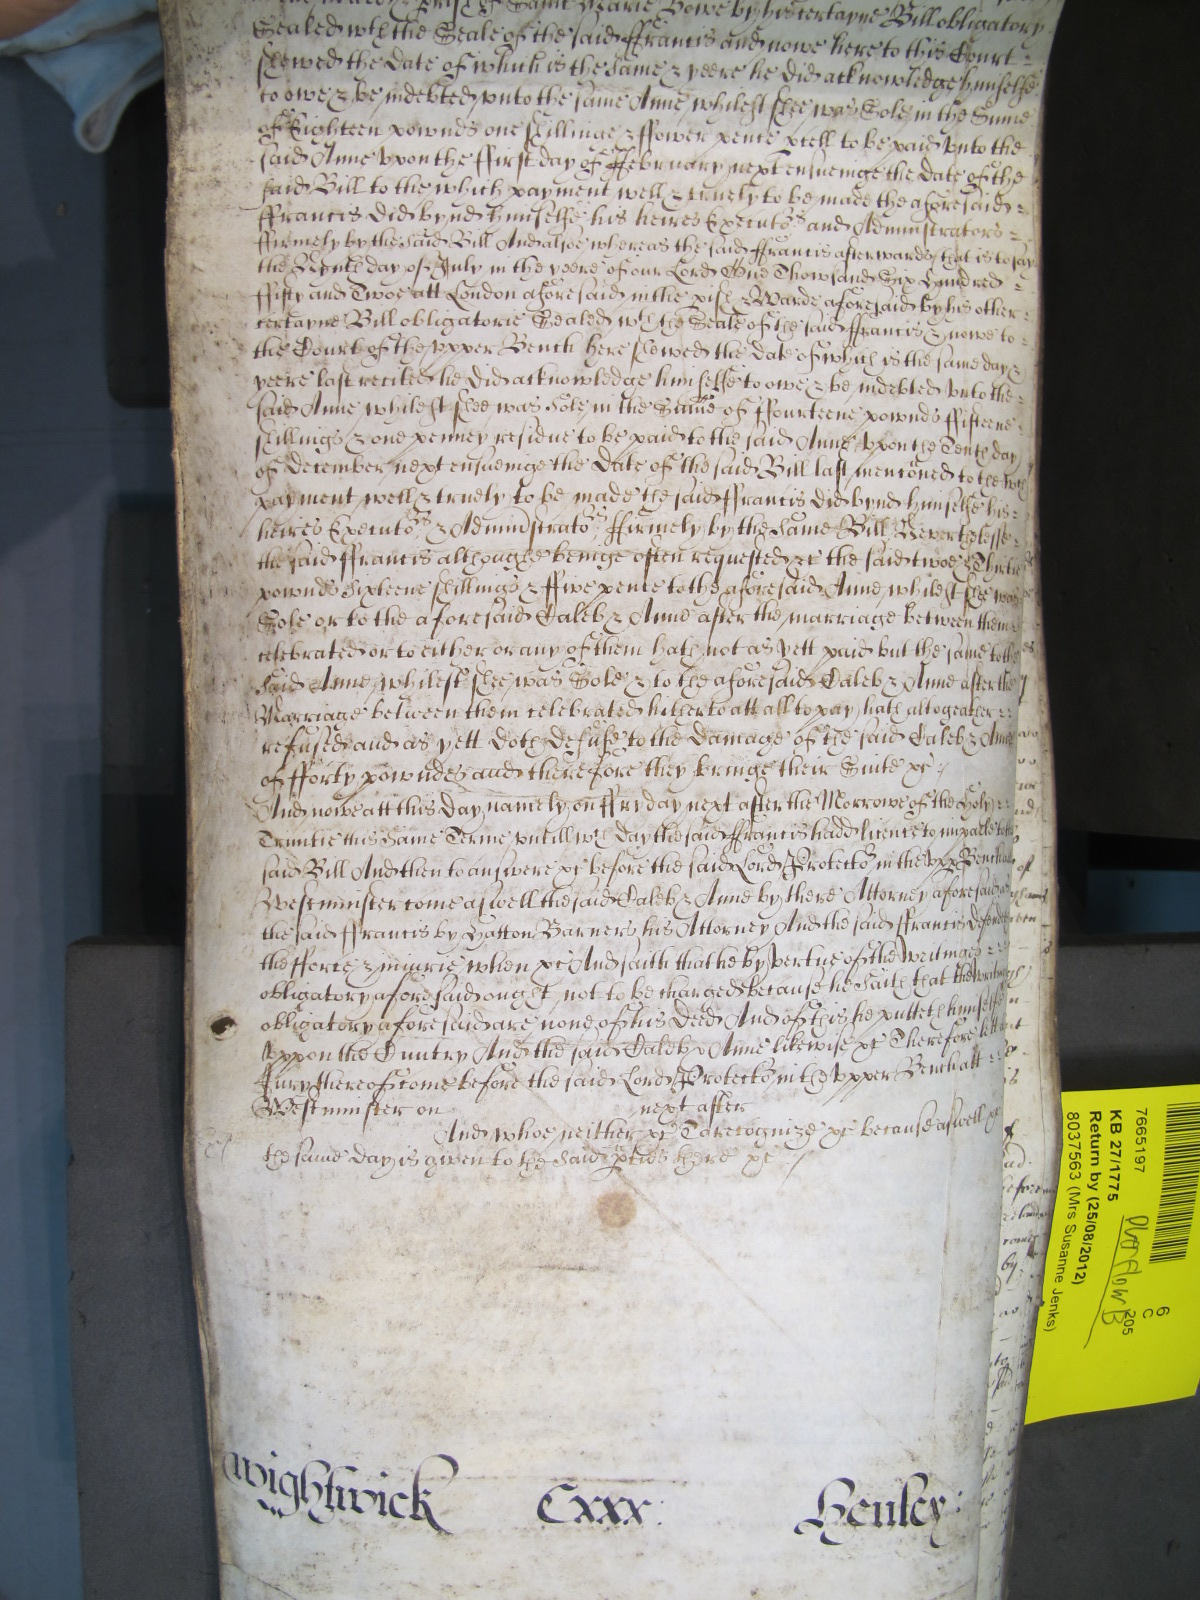 Saint Marie Bowe by his certayne Bill obligatory
Sealed wth the Seale of the said ffrancis and nowe here to this Court
shewed the date of which is the same & yeere he did acknowledge himselfe
to owe & be indebted unto the same Anne whilest shee was Sole in the Sume
of Eighteen pownds one shillinge & ffower pence pcell to be paid unto the
said Anne upon the ffirst day of ffebruary next ensueinge the date of the
said Bill to the which payment well & truely to be made the aforesaid
ffrancis did bynd himselfe his heires Executors and Administrators
ffirmely by the said Bill And alsoe whereas the said ffrancis afterwards that is to say
the day of July in the yeere of our Lord One Thowsand Six Hundred
ffifty and Twoe att London aforesaid in the pish & Warde aforesaid by his other
certayne Bill obligatorie Sealed wth the Seale of the said ffrancis & nowe to
the Court of the upper Bench here shewed the date of which is the same day &
yeere last recited he did acknowledge himselfe to owe & be indebted unto the
said Anne whilest shee was Sole in the Sume of ffourteene pownds ffifteene
shillings & one penney residue to be paid to the said Anne upon the Tenth day
of december next ensueinge the date of the said Bill last mentoned to the wch
payment well & truely to be made the said ffrancis did bynd himselfe his
heires Executors & Administrators ffirmely by the same Bill Neverthelesse
the said ffrancis althoughe beinge often requested &c the said twoe & Thirtie
pownds sixteene shillings & ffive pence to the aforesaid Anne whilest shee was
Sole or to the aforesaid Caleb & Anne after the marriage between them
celebrated or to either or any of them hath not as yett paid but the same to the
said Anne whilest shee was Sole & to the aforesaid Caleb & Anne after the
Marriage between them celebrated hitherto att all to pay hath altogeather
refused and as yett doth refuse to the damage of the said Caleb & Anne
of fforty powndes and therefore they bringe their Suite &c
And nowe att this day namely on ffryday next after the Morrowe of the Holy
Trinitie this same Terme untill wch day the said ffrancis hadd licence to imparle to the
said Bill And then to answere &c before the said Lord Protector in the upp Bench att
Westminster come aswell the said Caleb & Anne by there Attorney aforesaid as
the said ffrancis by Hatton Barners his Attorney And the said ffrancis defendeth
the fforce & iniurie when &c And saith that he by vertue of the writinges
obligatory aforesaid ought not to be charged because he saith that the writings
obligatory aforesaid are none of his deed And of this he putteth himselfe
uppon the Cuntry And the said Caleb & Anne likewise &c Therefore lett a
Jury thereof come before the said Lord Protector in the upper Bench att
Westminster on next after
And whoe neither &c To recognize &c because aswell &c
the same day is given to the said pties there &c
Wightwick Cxxx: Henley:
7665197
KB 27/1775
Return by (25/08/2012)
8037563 (Mrs Susanne Jenks)
6
C
205
Overflow B